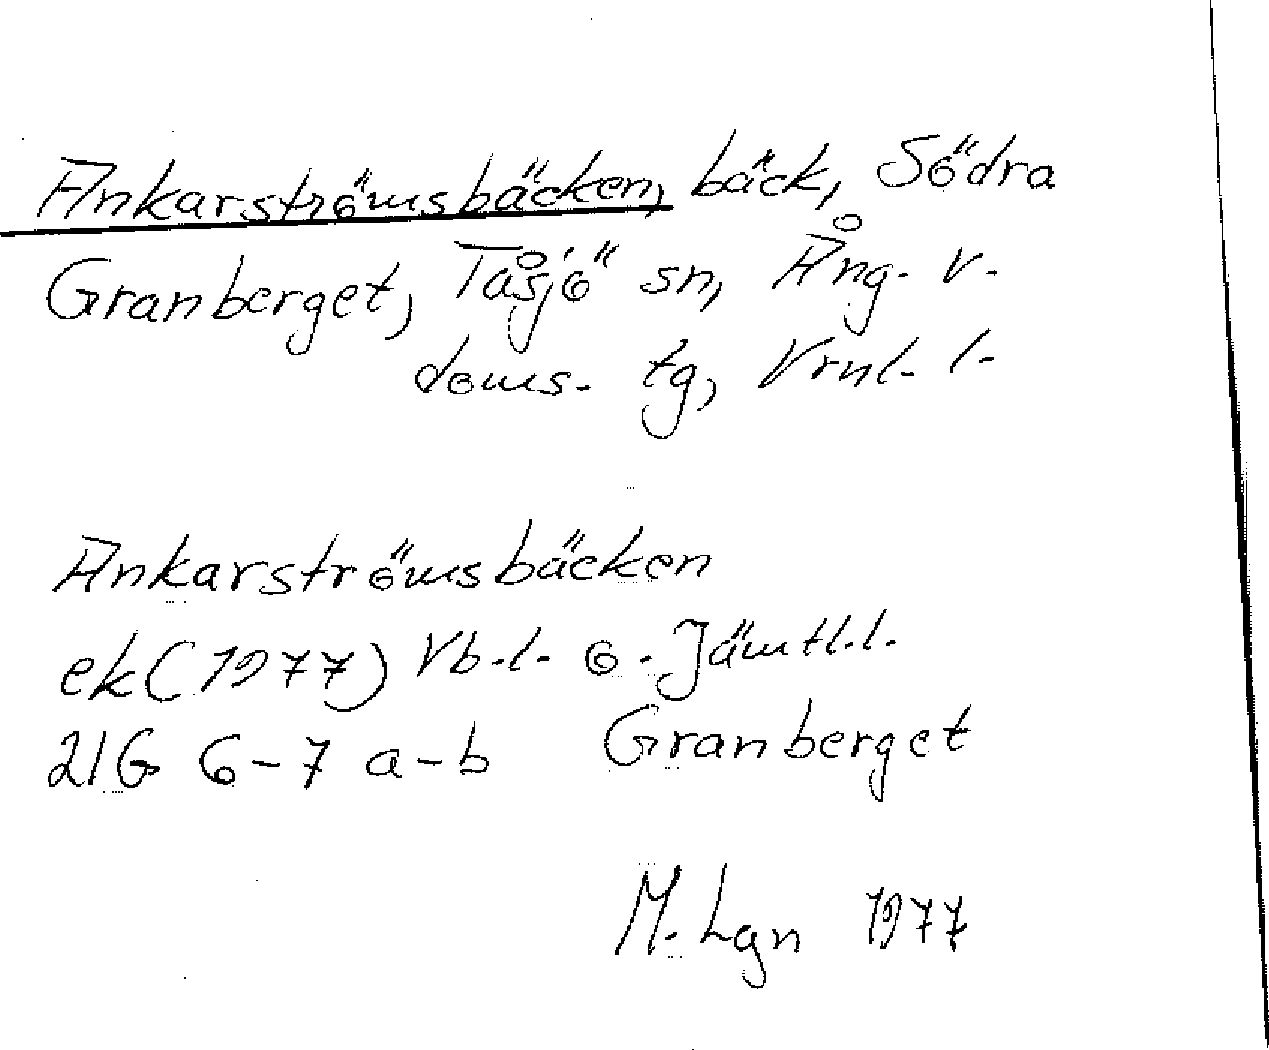 Ankarströmsbäcken, bäck, Södra
Granberget, Tåsjö sn, Ång. v.
doms. tg, Vrnl. l.
Ankarströmsbäcken
ek (1977) Vb.l. o. Jämtl.l.
21G 6-7 a-b Granberget
M. Lgn 1977